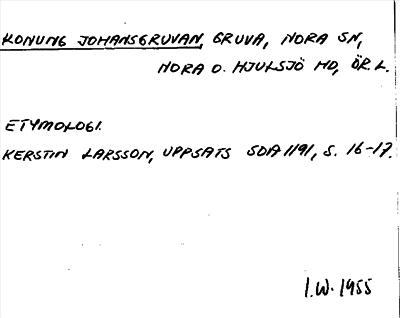 KONUNG JOHANSGRUVAN, GRUVA, NORA SN,
NORA O. HJULSJÖ HD, ÖR. L.
ETYMOLOGI.
KERSTIN LARSSON, UPPSATS SOA 1191, S. 16-17.
I.W. 1955